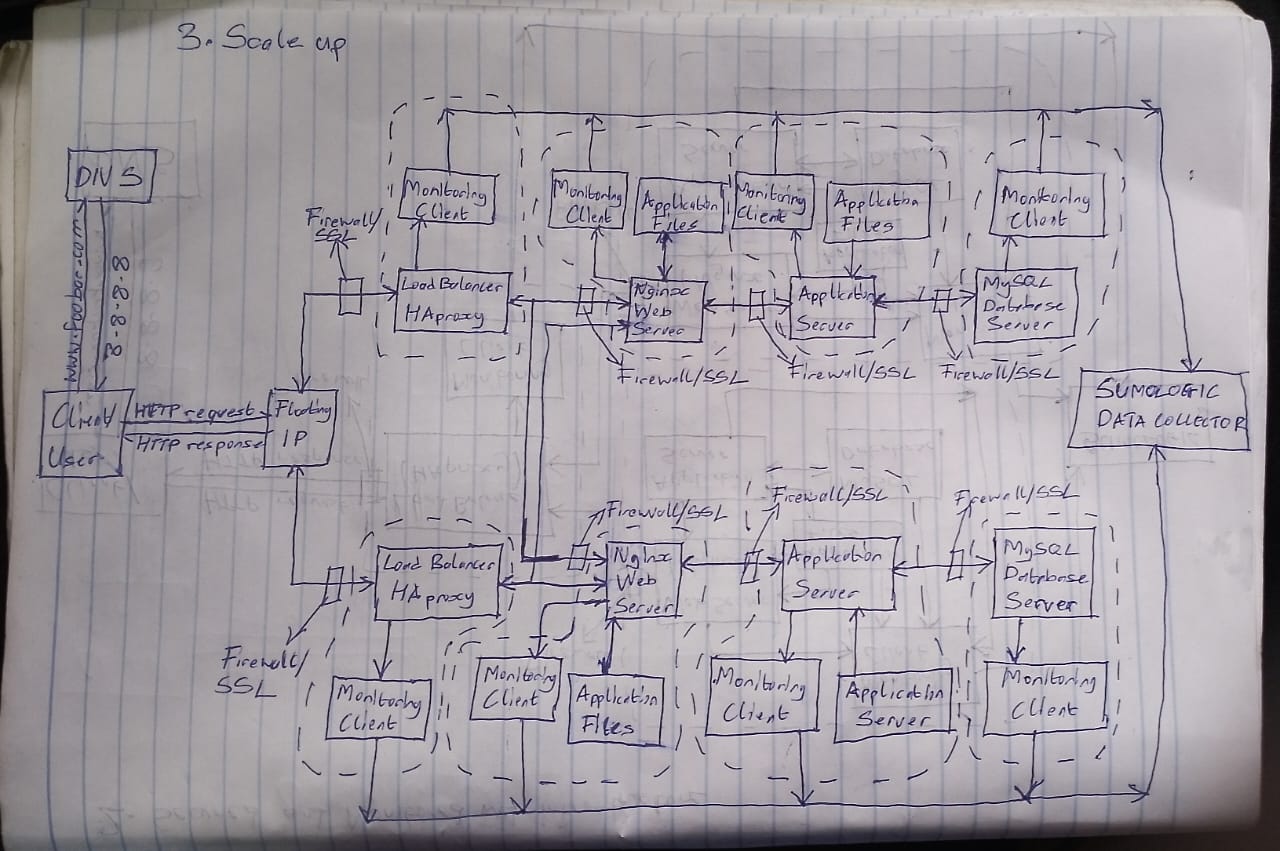 3. Scale up
DNS
www.foobar.com
8.8.8.8
Client/
User
HTTP request
HTTP response
Floating
IP
Firewall/
SSL
Monitoring
Client
Load Balancer
HAproxy
Monitoring
Client
Application
Files
Nginx
Web
Server
Firewall/SSL
Monitoring
Client
Application
Files
Application
Server
Firewall/SSL
Monitoring
Client
MySQL
Database
Server
Firewall/SSL
SUMOLOGIC
DATA COLLECTOR
Firewall/
SSL
Load Balancer
HAproxy
Monitoring
Client
Firewall/SSL
Nginx
Web
Server
Monitoring
Client
Application
Files
Firewall/SSL
Application
Server
Monitoring
Client
Application
Server
Firewall/SSL
MySQL
Database
Server
Monitoring
Client